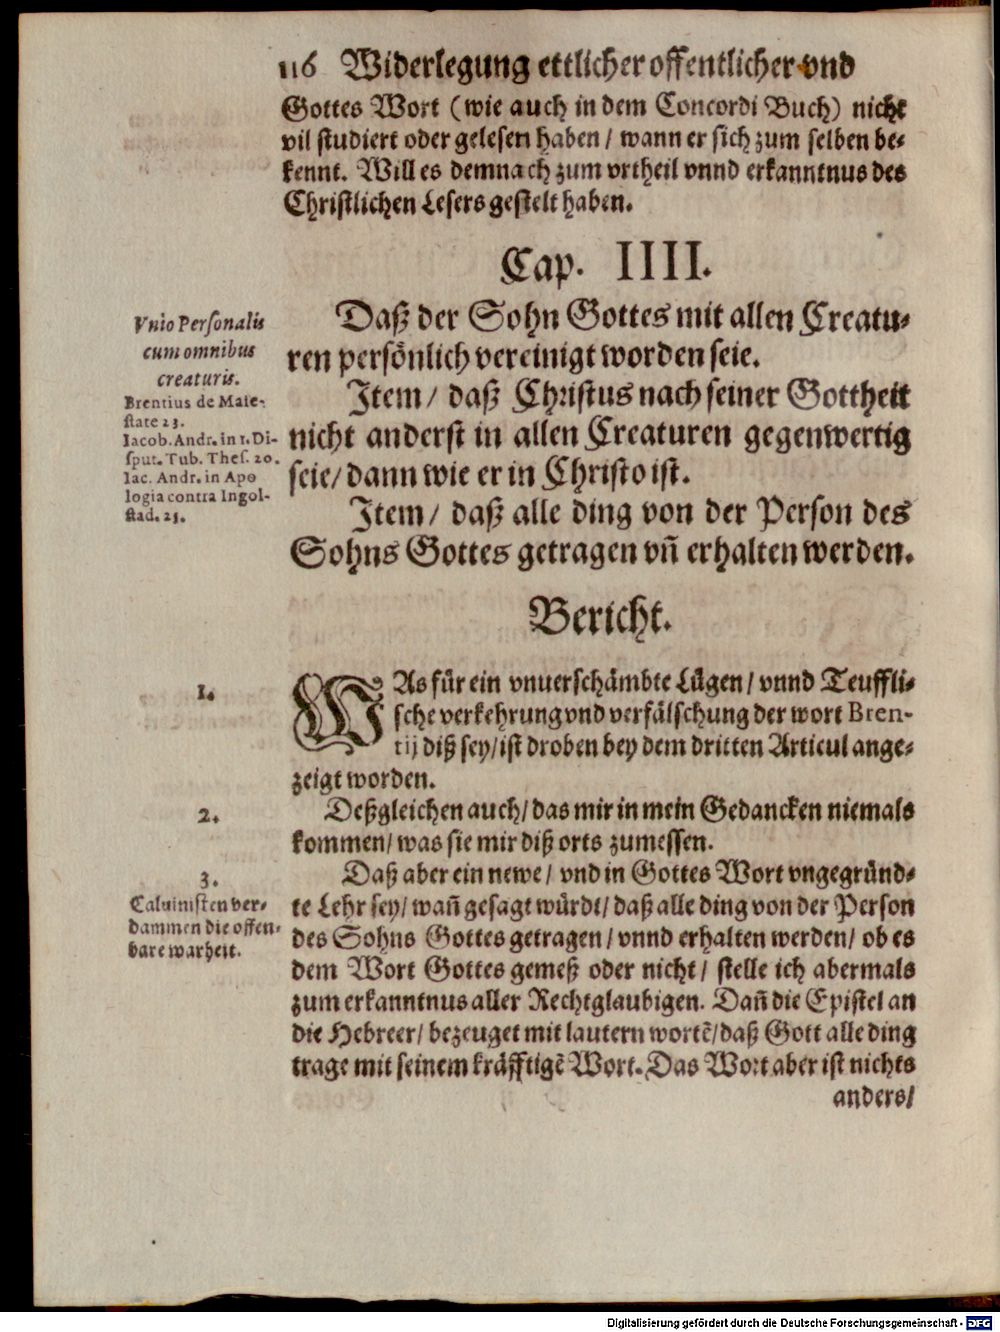 116 Widerlegung ettlicher offentlicher vnd
Gottes Wort (wie auch in dem Concordi Buch) nicht
vil studiert oder gelesen haben / wann er sich zum selben be-
kennt. Will es demnach zum vrtheil vnnd erkanntnus des
Christlichen Lesers gestelt haben.
Cap. IIII.
Daß der Sohn Gottes mit allen Creatu-
ren persönlich vereinigt worden seie.
Item / daß Christus nach seiner Gottheit
nicht anderst in allen Creaturen gegenwertig
seie / dann wie er in Christo ist.
Item / daß alle ding von der Person des
Sohns Gottes getragen vñ erhalten werden.
Vnio Personalis
cum omnibus
creaturis.
Brentius de Maie-
state 23.
Iacob. Andr. in 1. Di-
sput. Tub. Thes. 20.
Iac. Andr. in Apo
logia contra Ingol-
stad. 25.
Bericht.
1.
WAs für ein vnuerschämbte Lügen / vnnd Teuffli-
sche verkehrung vnd verfälschung der wort Bren-
tij diß sey / ist droben bey dem dritten Articul ange-
zeigt worden.
2.
Deßgleichen auch / das mir in mein Gedancken niemals
kommen / was sie mir diß orts zumessen.
3.
Caluinisten ver-
dammen die offen-
bare warheit.
Daß aber ein newe / vnd in Gottes Wort vngegründ-
te Lehr sey / wañ gesagt würdt / daß alle ding von der Person
des Sohns Gottes getragen / vnnd erhalten werden / ob es
dem Wort Gottes gemeß oder nicht / stelle ich abermals
zum erkanntnus aller Rechtglaubigen. Dañ die Epistel an
die Hebreer / bezeuget mit lautern wortẽ / daß Gott alle ding
trage mit seinem kräfftigẽ Wort. Das Wort aber ist nichts
anders /
Digitalisierung gefördert durch die Deutsche Forschungsgemeinschaft - DFG